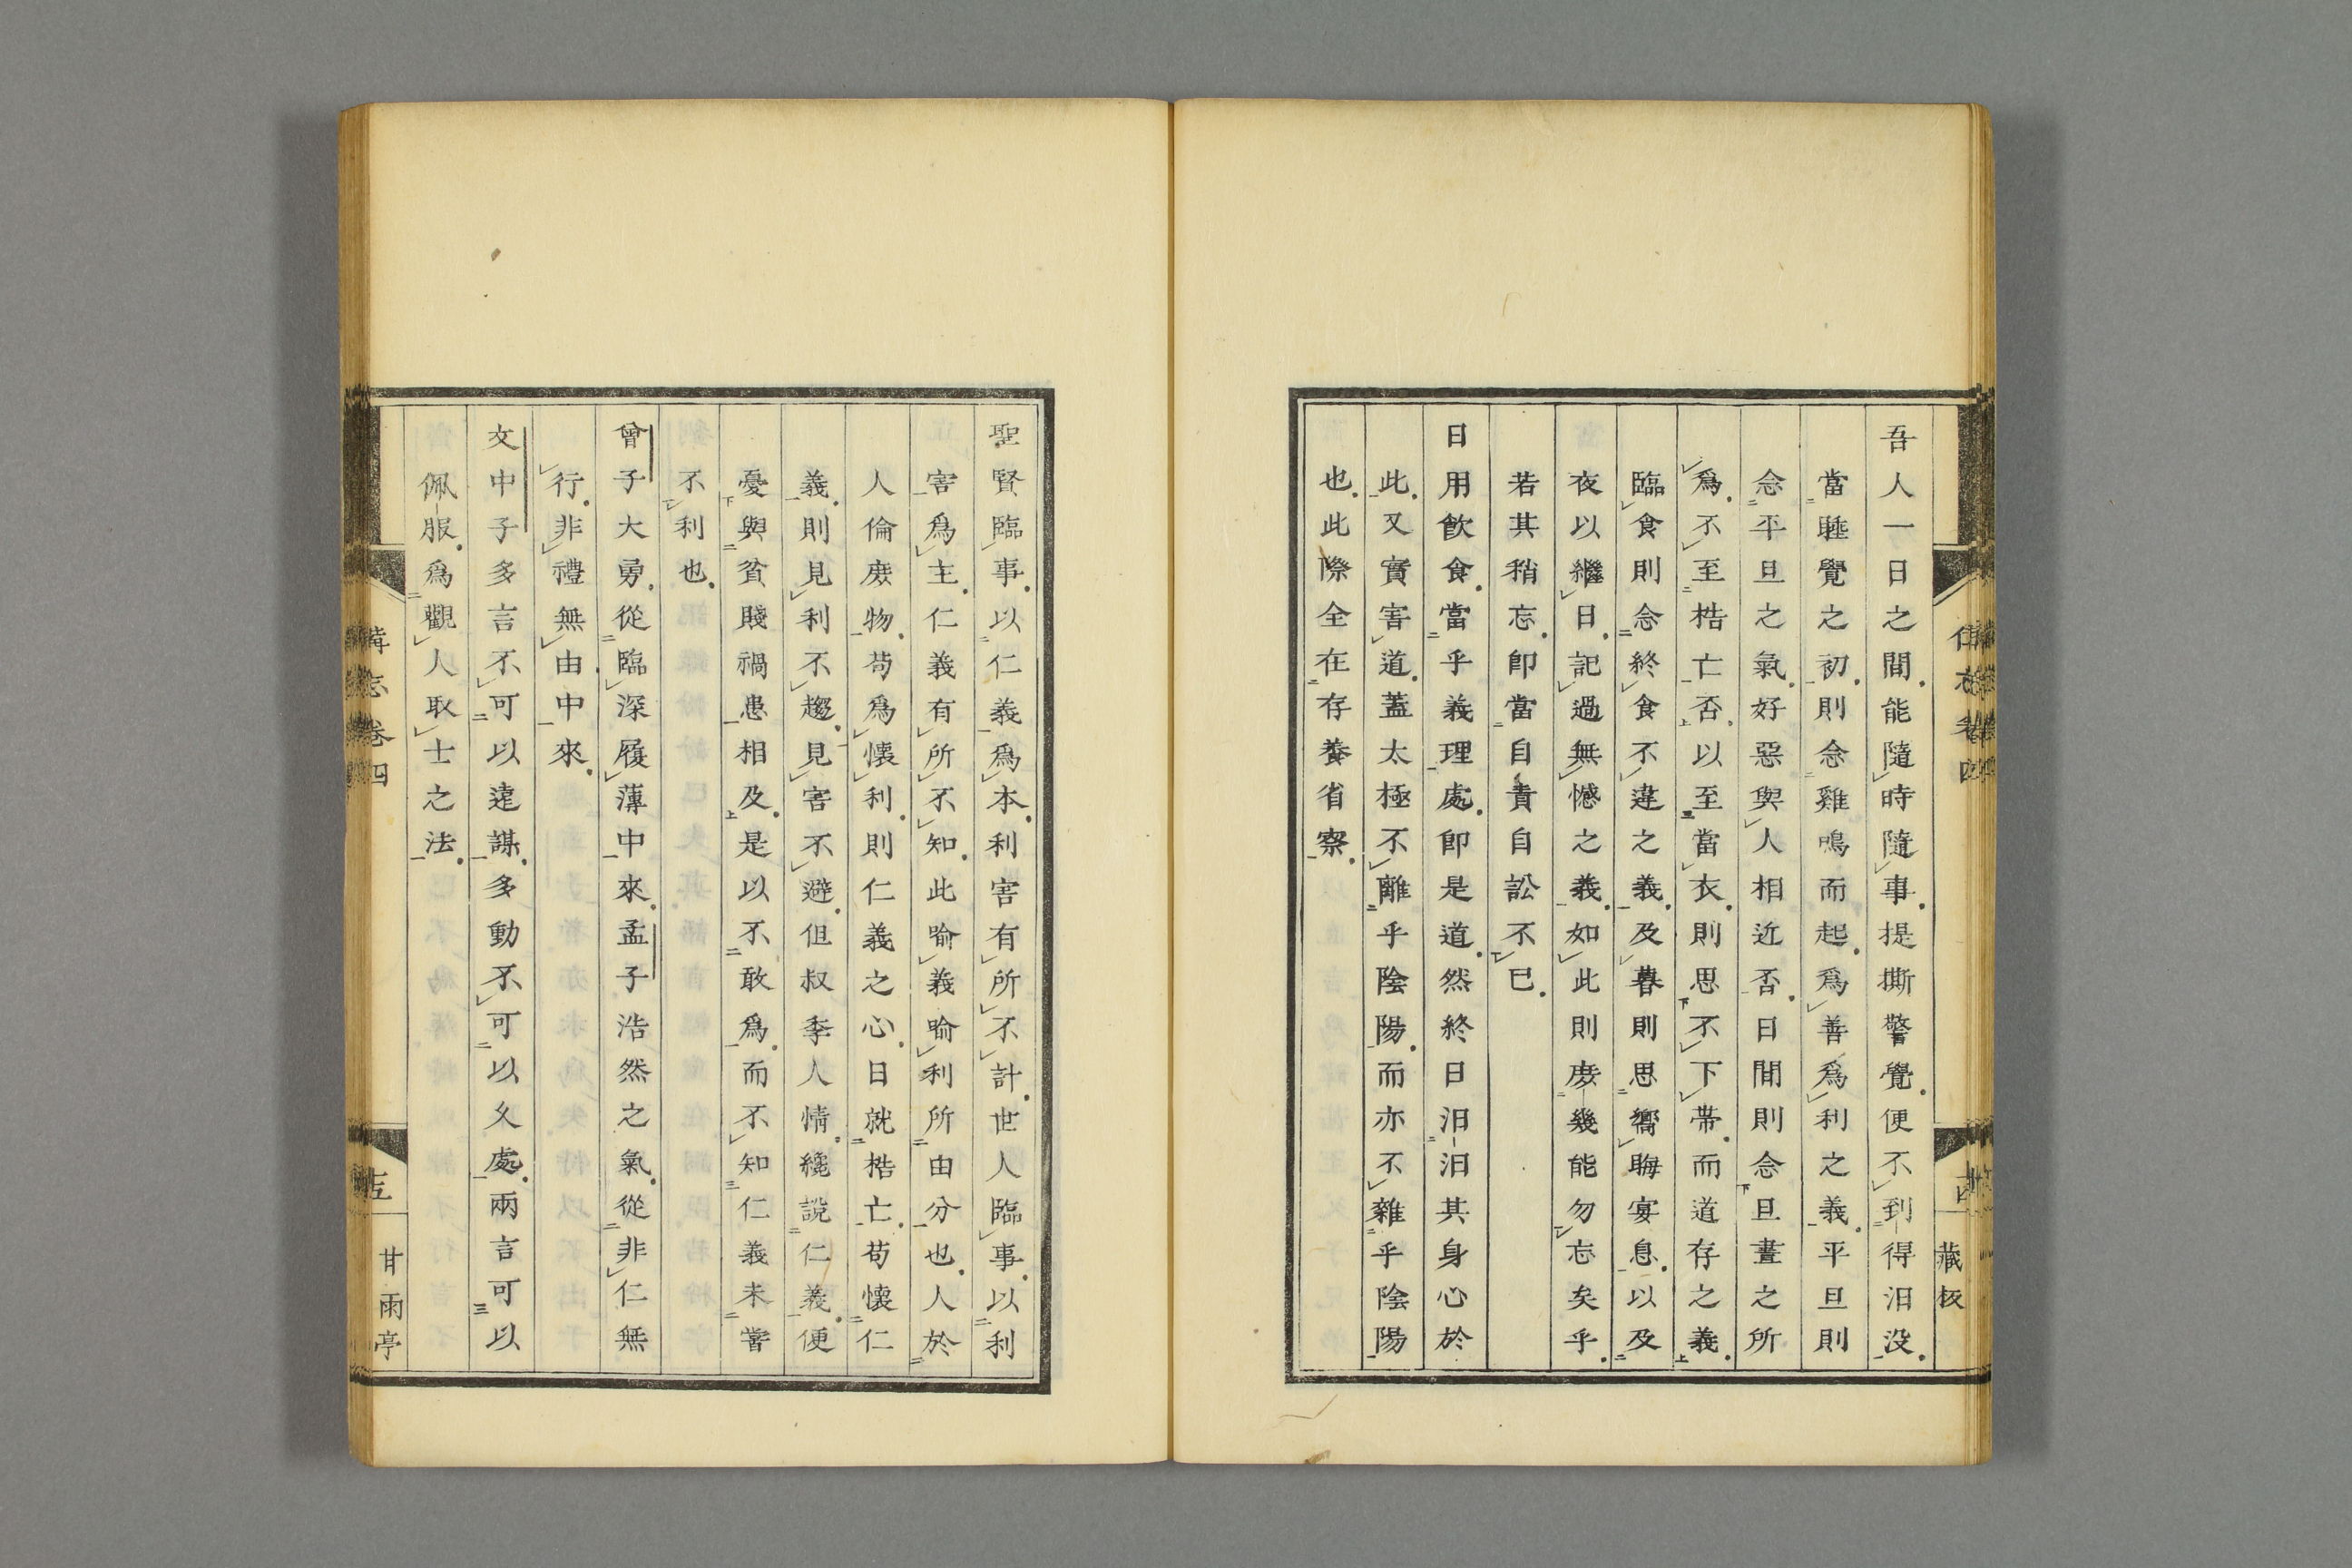 吾人一日之間能隨時隨事提撕警覺便不到得汨没
當睡覺之初則念雞鳴而起爲善爲利之義平旦則
念平旦之氣好惡與人相近否日間則念旦晝之所
爲不至梏亡否以至當衣則思不下帶而道存之義
臨食則念終食不違之義及暮則思嚮晦宴息以及
夜以繼日記過無憾之義如此則庻幾能勿忘矣乎
若其稍忘卽當自責自訟不已
日用飮食當乎義理處卽是道然終日汨汨其身心於
此又實害道蓋太極不離乎陰陽而亦不雜乎陰陽
也此際全在存養省察
藏板
聖賢臨事以仁義爲本利害有所不計世人臨事以利
害爲主仁義有所不知此喻義喻利所由分也人於
人倫庻物茍爲懷利則仁義之心日就梏亡茍懷仁
義則見利不趨見害不避但叔季人情纔說仁義便
憂與貧賤禍患相及是以不敢爲而不知仁義未嘗
不利也
曾子大勇從臨深履薄中來孟子浩然之氣從非仁無
行非禮無由中來
文中子多言不可以遠謀多動不可以久處兩言可以
佩服爲觀人取士之法
卷四
甘雨亭